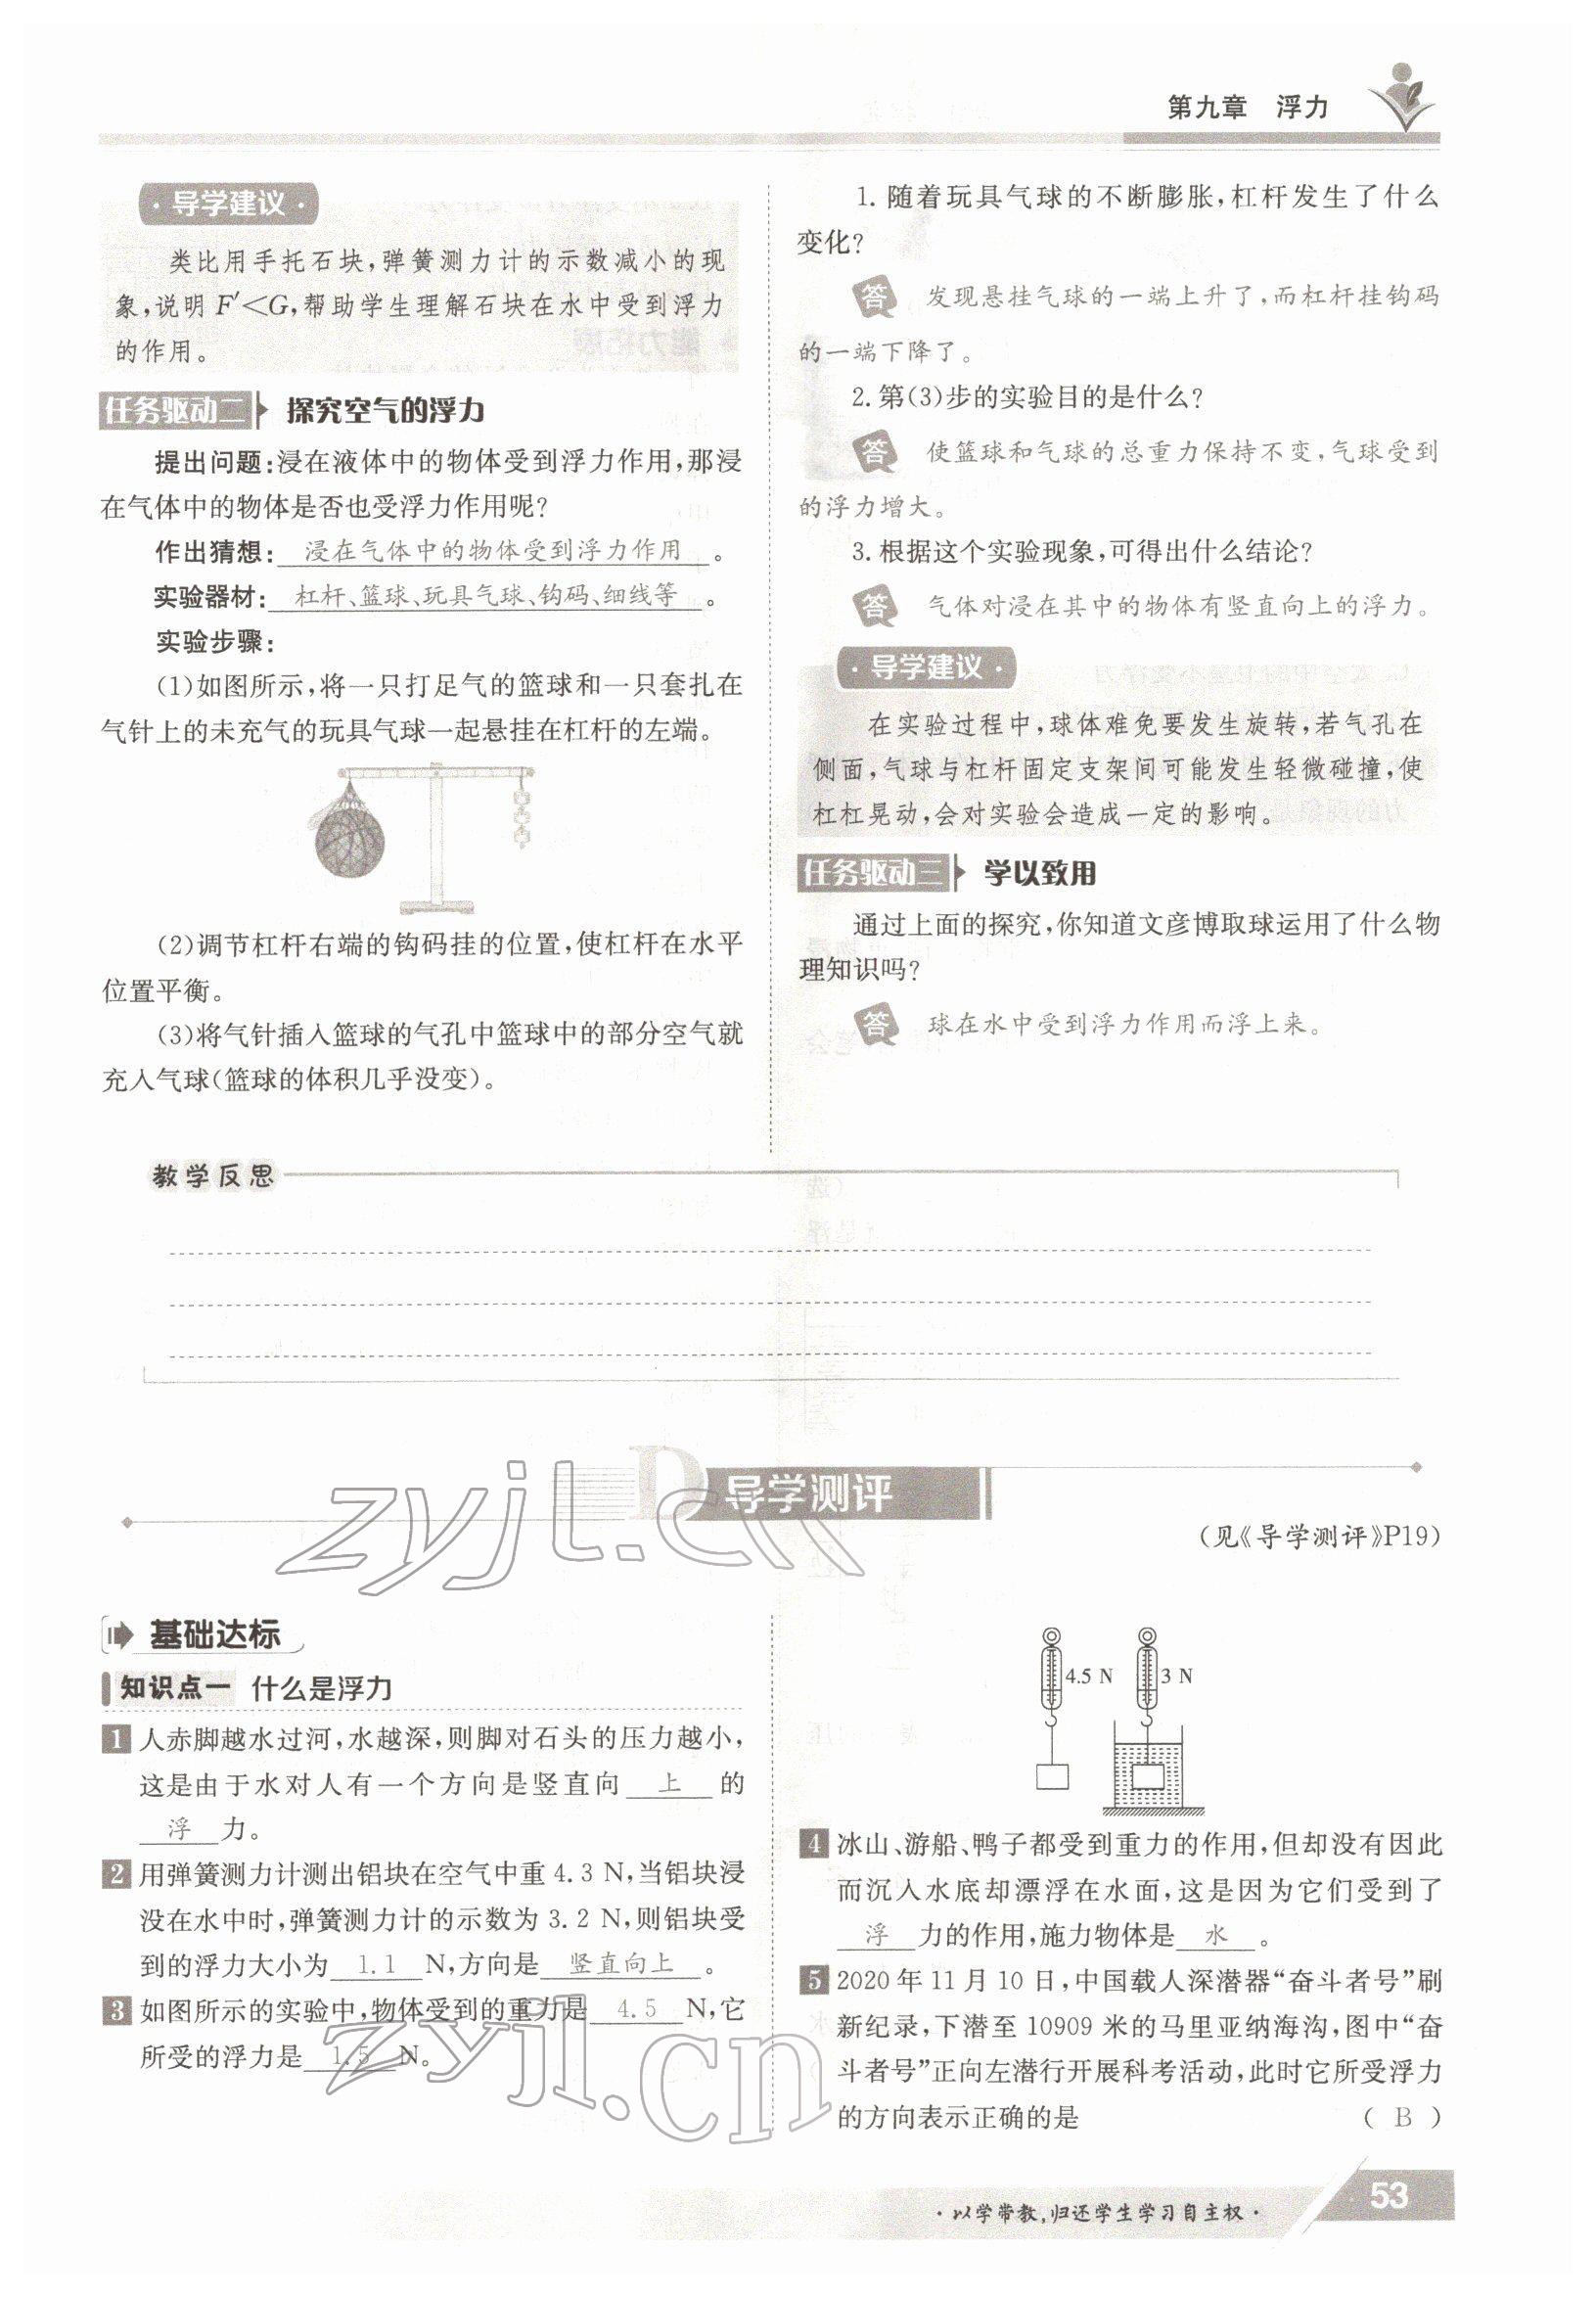 第九章 浮力
·导学建议·
类比用手托石块,弹簧测力计的示数减小的现
象,说明F′<G,帮助学生理解石块在水中受到浮力
的作用。
任务驱动二 探究空气的浮力
提出问题:浸在液体中的物体受到浮力作用,那浸
在气体中的物体是否也受浮力作用呢?
作出猜想: 浸在气体中的物体受到浮力作用 。
实验器材: 杠杆、篮球、玩具气球、钩码、细线等 。
实验步骤:
(1)如图所示,将一只打足气的篮球和一只套扎在
气针上的未充气的玩具气球一起悬挂在杠杆的左端。
(2)调节杠杆右端的钩码挂的位置,使杠杆在水平
位置平衡。
(3)将气针插入篮球的气孔中篮球中的部分空气就
充入气球(篮球的体积几乎没变)。
1. 随着玩具气球的不断膨胀,杠杆发生了什么
变化?
答 发现悬挂气球的一端上升了,而杠杆挂钩码
的一端下降了。
2. 第(3)步的实验目的是什么?
答 使篮球和气球的总重力保持不变,气球受到
的浮力增大。
3. 根据这个实验现象,可得出什么结论?
答 气体对浸在其中的物体有竖直向上的浮力。
·导学建议·
在实验过程中,球体难免要发生旋转,若气孔在
侧面,气球与杠杆固定支架间可能发生轻微碰撞,使
杠杠晃动,会对实验会造成一定的影响。
任务驱动三 学以致用
通过上面的探究,你知道文彦博取球运用了什么物
理知识吗?
答 球在水中受到浮力作用而浮上来。
教学反思
导学测评
(见《导学测评》P19)
zyjl.cn
基础达标
知识点一 什么是浮力
1 人赤脚越水过河,水越深,则脚对石头的压力越小,
这是由于水对人有一个方向是竖直向 上 的
浮 力。
2 用弹簧测力计测出铝块在空气中重4.3 N,当铝块浸
没在水中时,弹簧测力计的示数为3.2 N,则铝块受
到的浮力大小为 1.1 N,方向是 竖直向上 。
3 如图所示的实验中,物体受到的重力是 4.5 N,它
所受的浮力是 1.5 N。
zyjl.cn
4.5 N 3 N
4 冰山、游船、鸭子都受到重力的作用,但却没有因此
而沉入水底却漂浮在水面,这是因为它们受到了
浮 力的作用,施力物体是 水 。
5 2020年11月10日,中国载人深潜器“奋斗者号”刷
新纪录,下潜至10909米的马里亚纳海沟,图中“奋
斗者号”正向左潜行开展科考活动,此时它所受浮力
的方向表示正确的是 ( B )
·以学带教,归还学生学习自主权·
53